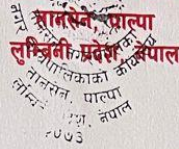 तानसेन, पाल्पा
लुम्बिनी प्रदेश, नेपाल
नगर
पालिकाको
तानसेन, पाल्पा
नेपाल
२०७३